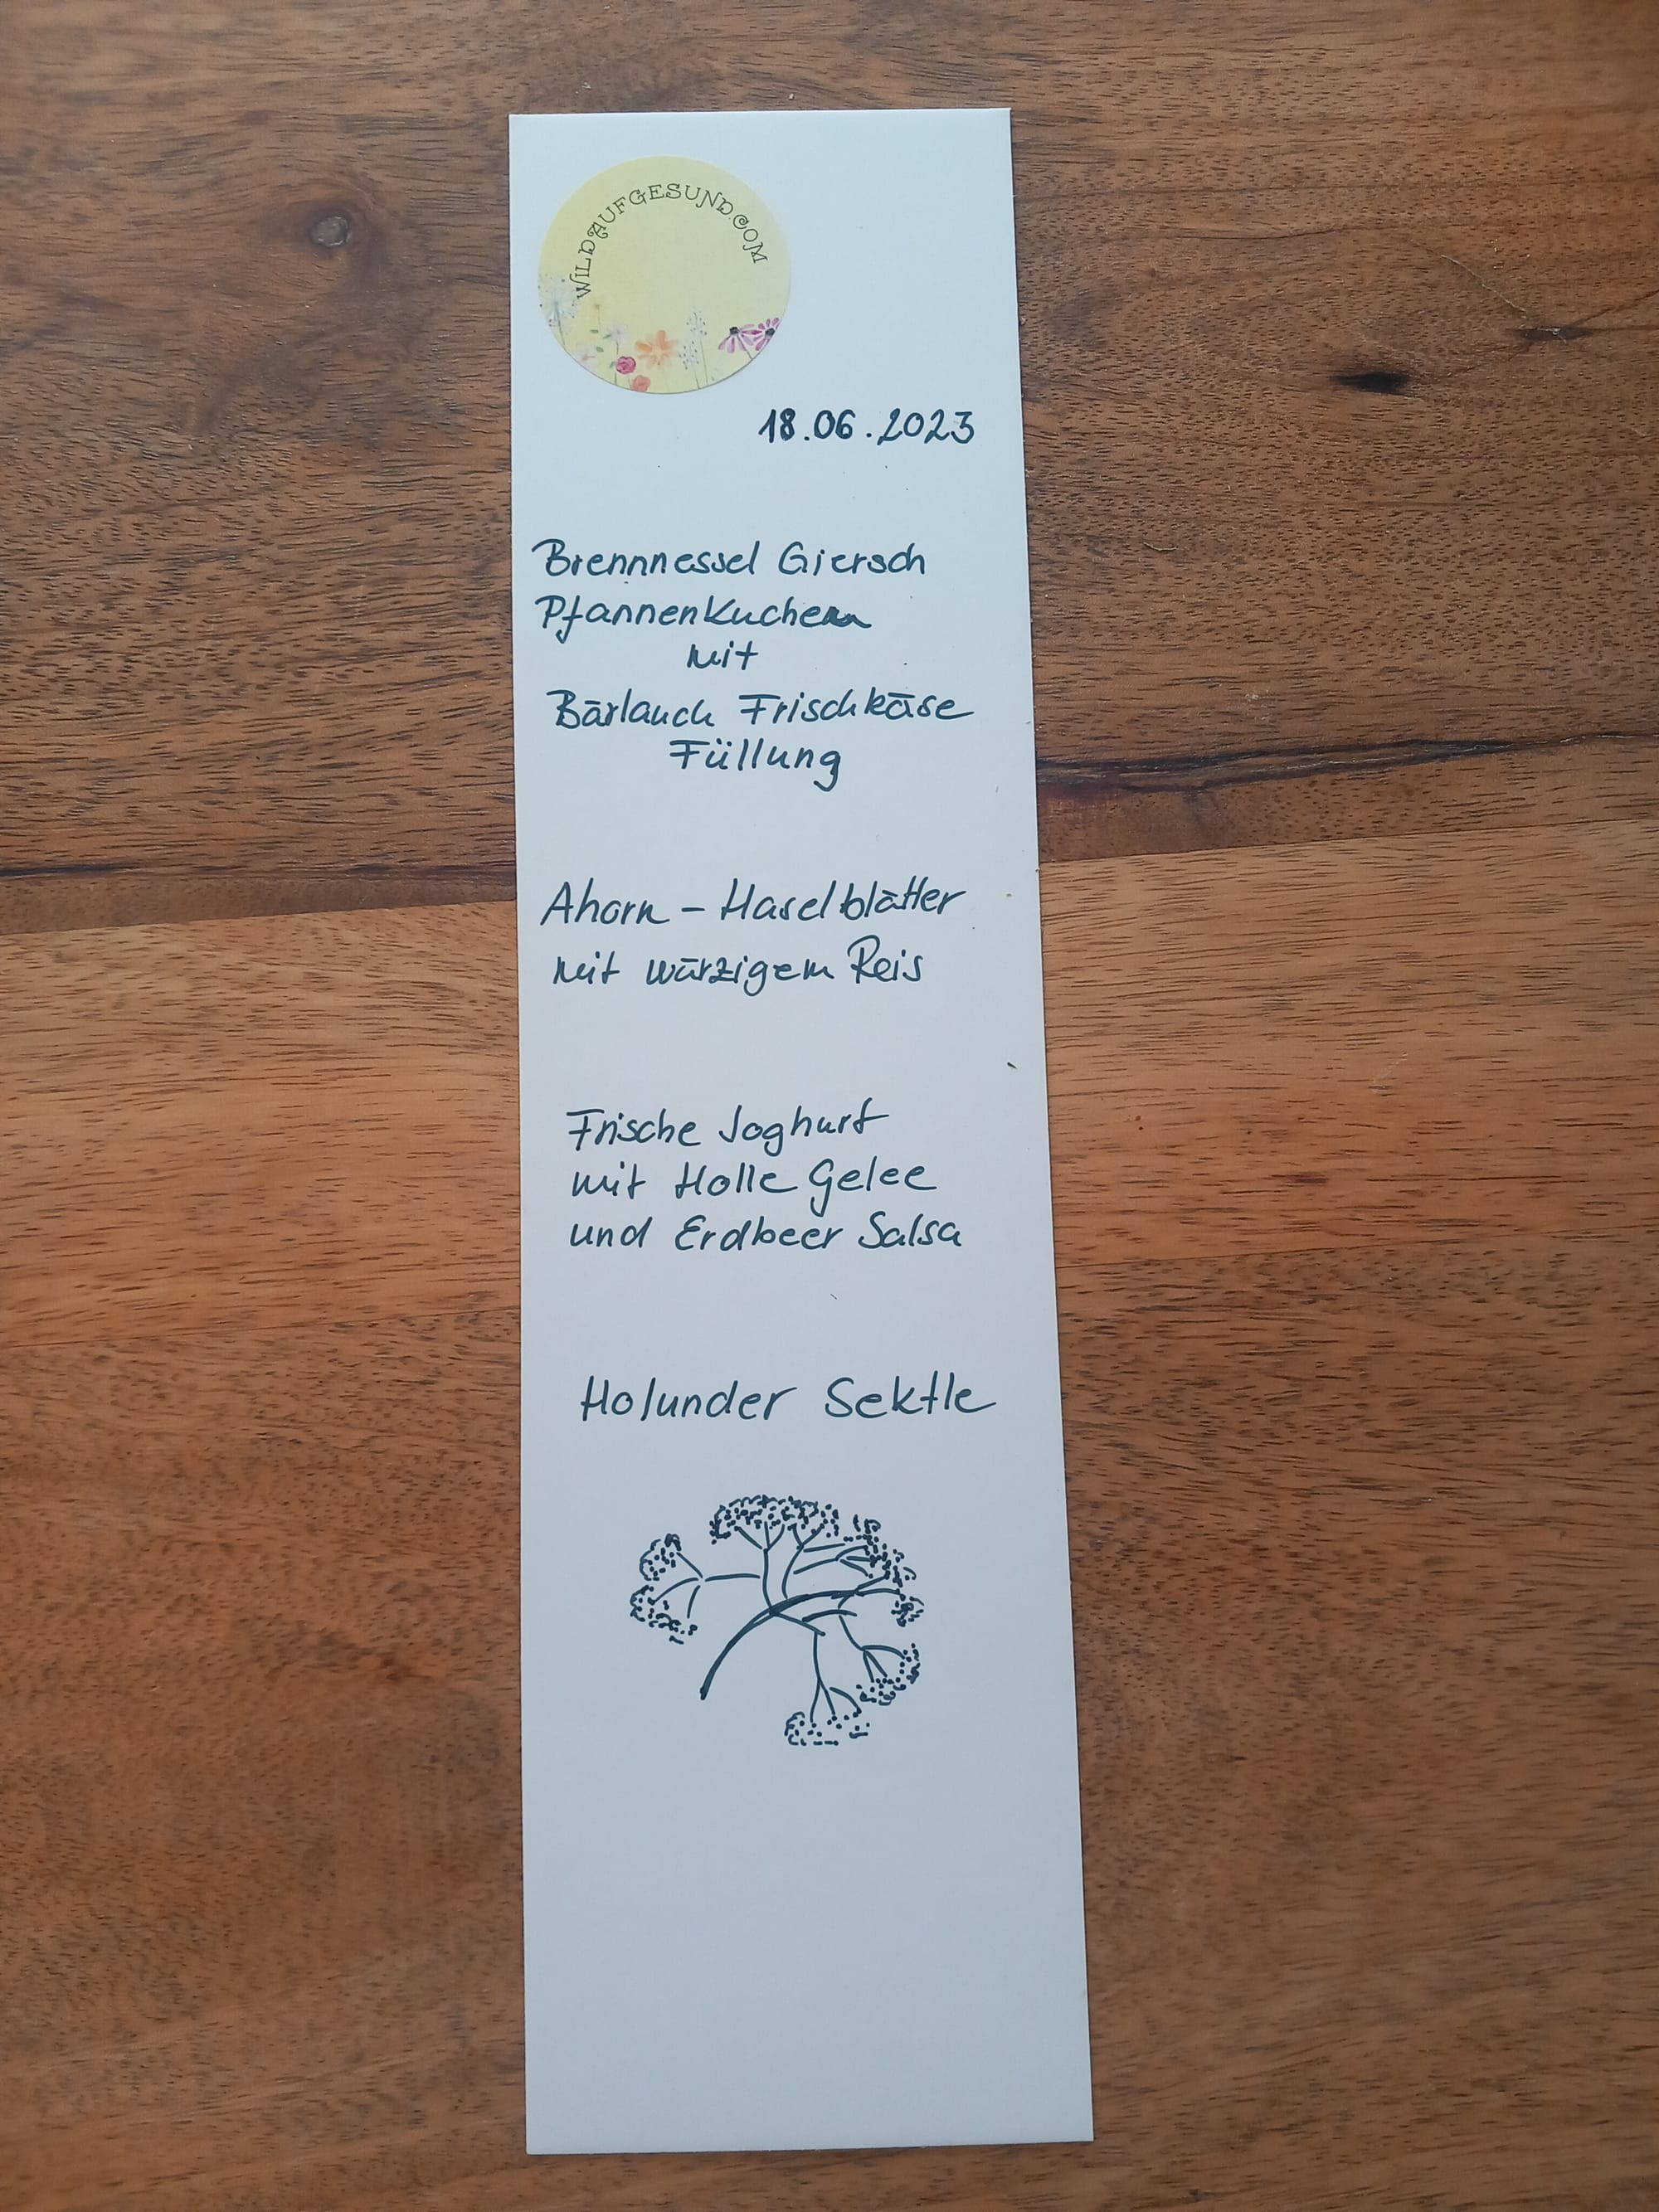 WILDAUFGESUND.COM
18.06.2023
Brennnessel Giersch
Pfannenkuchen
mit
Bärlauch Frischkäse
Füllung
Ahorn - Haselblätter
mit würzigem Reis
Frische Joghurt
mit Holle Gelee
und Erdbeer Salsa
Holunder Sektle